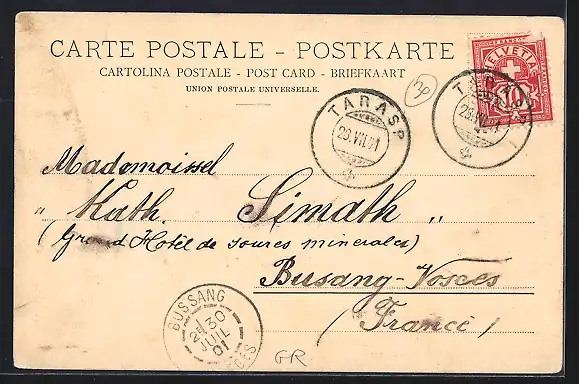 CARTE POSTALE - POSTKARTE
CARTOLINA POSTALE - POST CARD - BRIEFKAART
UNION POSTALE UNIVERSELLE.
FRANCO
HELVETIA
TARASP
29.VII.01
TARASP
29.VII.01
Mademoisel
" Kath. Simath "
(Grand Hotêl de soures minerales)
Busang-Vosces
(France)
BUSSANG
2E 30
JUIL
01
GR